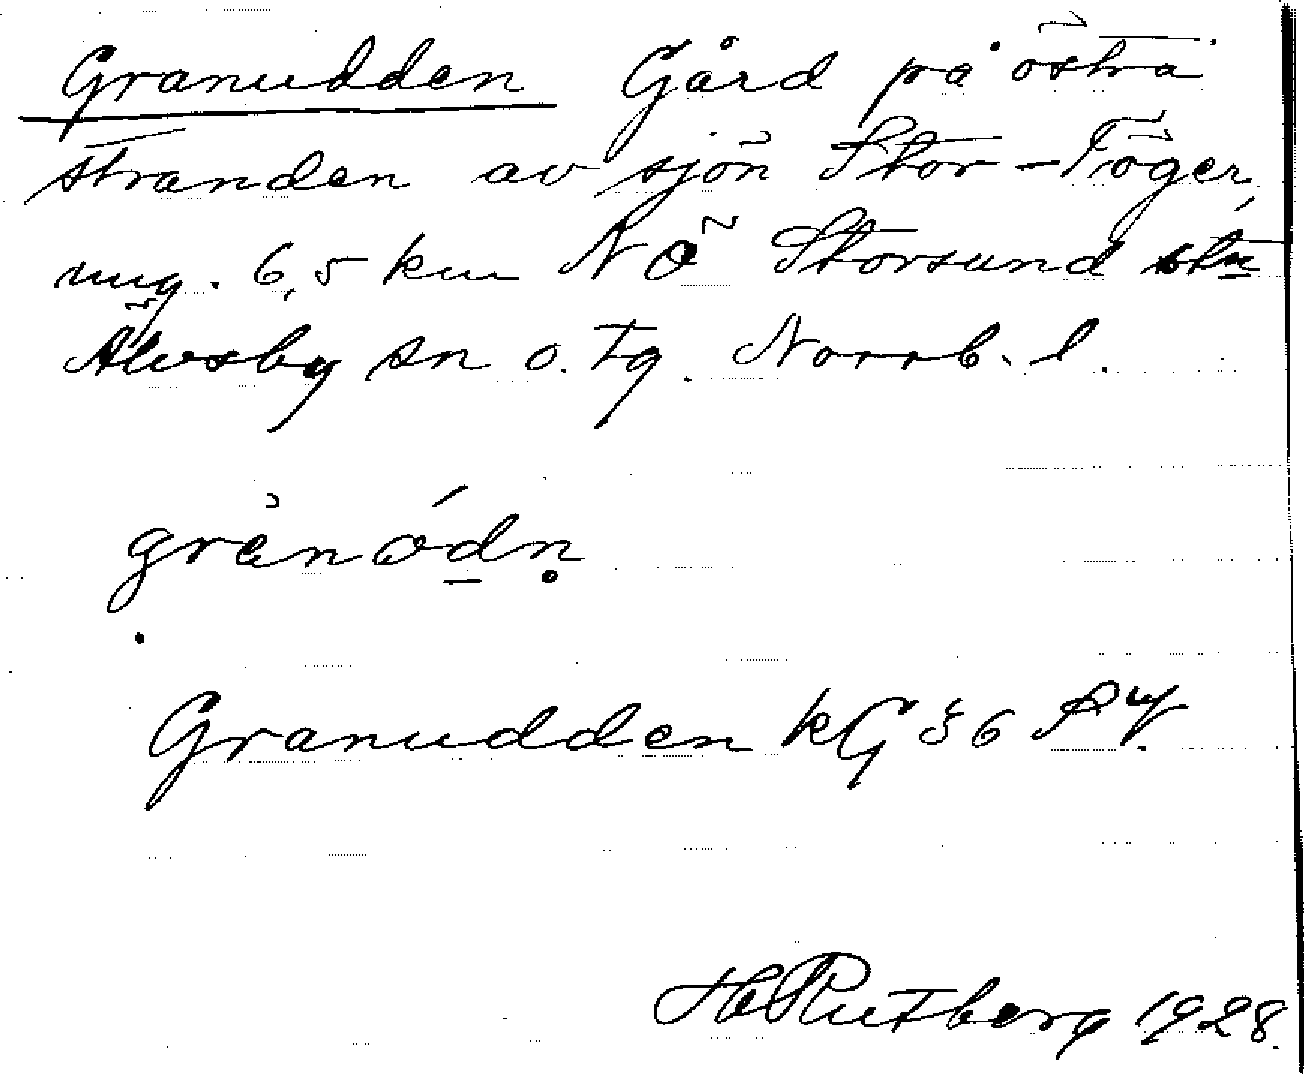 Granudden Gård på östra
stranden av sjön Stor-Töger,
ung. 6,5 km NÖ Storsund stn
Älvsby sn o. tg. Norrb. l.
grànódṇ
Granudden kG § 6
H Rutberg 1928.